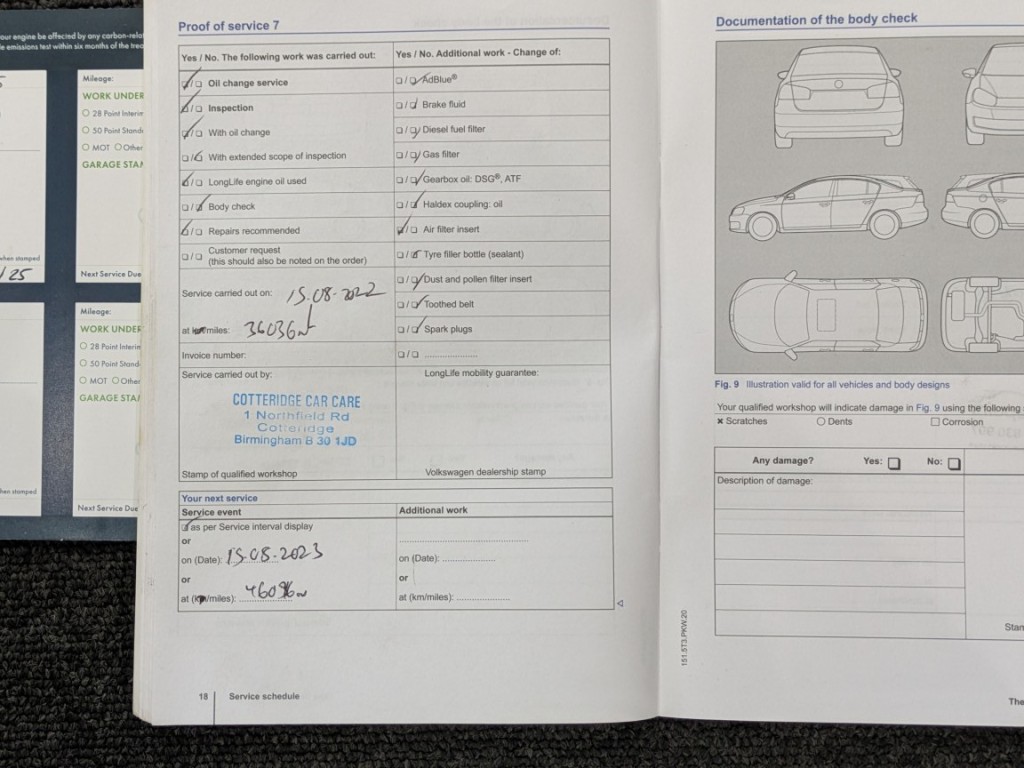 our engine be affected by any carbon-rela
e emissions test within six months of the trea
Mileage:
WORK UNDER
28 Point Interim
50 Point Stand
MOT Other
GARAGE STA
when stamped
/25
Next Service Due
Mileage:
WORK UNDER
28 Point Interim
50 Point Stand
MOT Other
GARAGE STA
hen stamped
Next Service Due
Proof of service 7
Yes / No. The following work was carried out:
Oil change service
Inspection
With oil change
With extended scope of inspection
LongLife engine oil used
Body check
Repairs recommended
Customer request
(this should also be noted on the order)
Service carried out on: 15.08.2022
at km/miles: 36036
Invoice number:
Service carried out by:
COTTERIDGE CAR CARE
1 Northfield Rd
Cotteridge
Birmingham B 30 1JD
Stamp of qualified workshop
Yes / No. Additional work - Change of:
AdBlue®
Brake fluid
Diesel fuel filter
Gas filter
Gearbox oil: DSG®, ATF
Haldex coupling: oil
Air filter insert
Tyre filler bottle (sealant)
Dust and pollen filter insert
Toothed belt
Spark plugs
LongLife mobility guarantee:
Volkswagen dealership stamp
Your next service
Service event
as per Service interval display
or
on (Date): 15.08.2023
or
at (km/miles): 46036
Additional work
on (Date):
or
at (km/miles):
18 Service schedule
Documentation of the body check
Fig. 9 Illustration valid for all vehicles and body designs
Your qualified workshop will indicate damage in Fig. 9 using the following
Scratches Dents Corrosion
Any damage? Yes: No:
Description of damage:
Stam
151.5T3.PKW.20
The